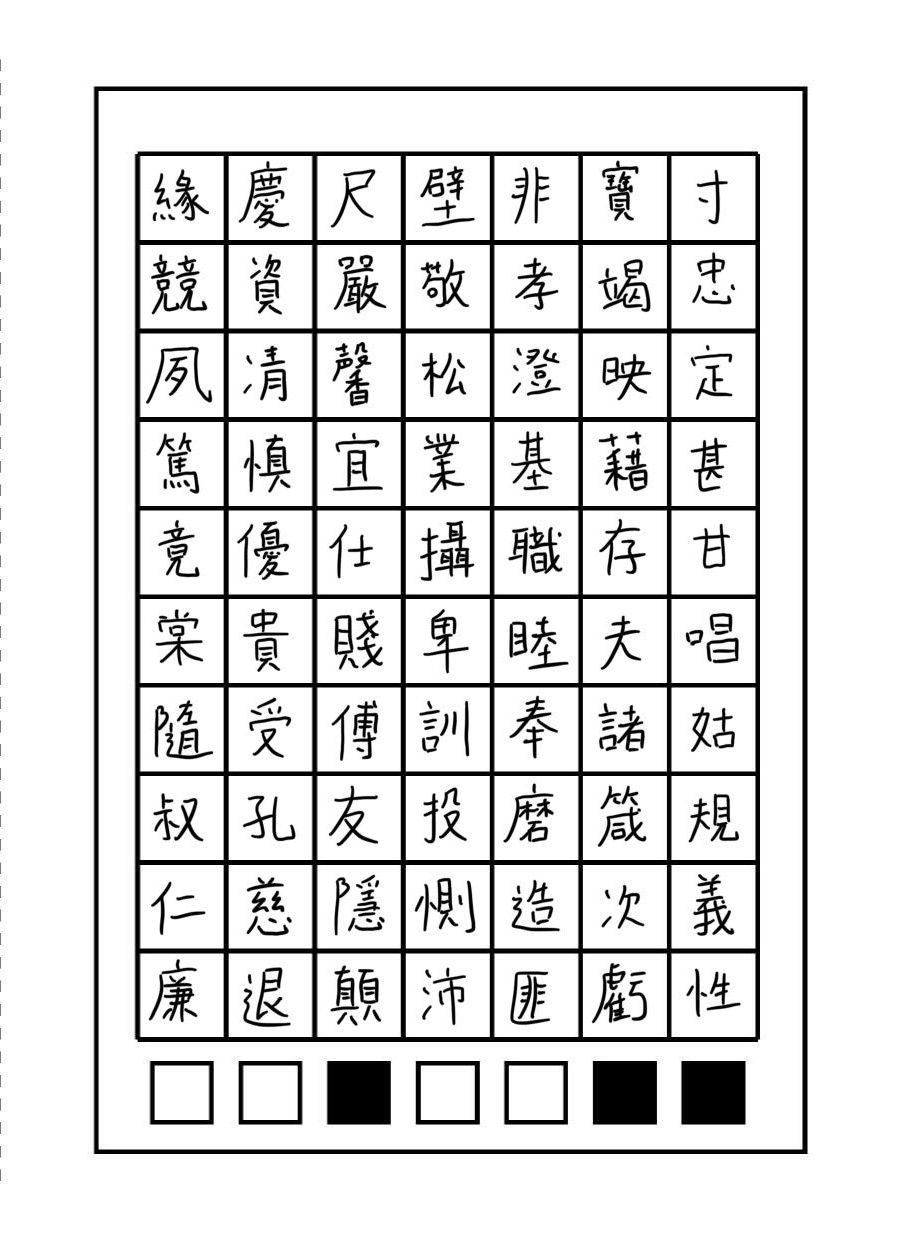 緣慶尺壁非寶寸
競資嚴敬孝竭忠
夙凊馨松澄映定
篤慎宜業基藉甚
竟優仕攝職存甘
棠貴賤卑睦夫唱
隨受傅訓奉諸姑
叔孔友投磨箴規
仁慈隱惻造次義
廉退顛沛匪虧性